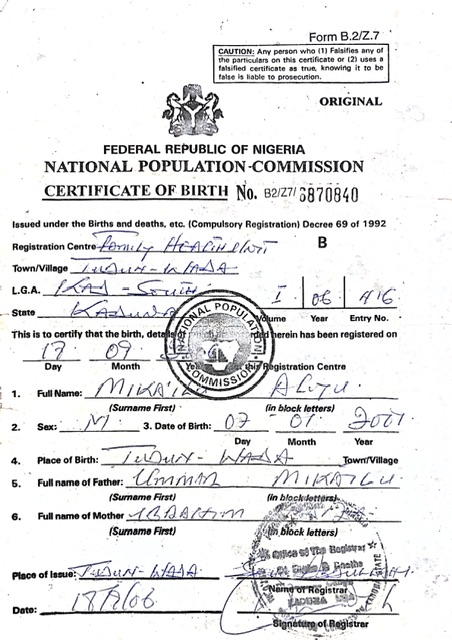 Form B.2/Z.7
CAUTION: Any person who (1) Falsifies any of
the particulars on this certificate or (2) uses a
falsified certificate as true, knowing it to be
false is liable to prosecution.
ORIGINAL
FEDERAL REPUBLIC OF NIGERIA
NATIONAL POPULATION COMMISSION
CERTIFICATE OF BIRTH No. B2/Z7/ 3870840
Issued under the Births and deaths, etc. (Compulsory Registration) Decree 69 of 1992
Registration Centre Family Health Unit B
Town/Village Tudun-Wada
L.G.A. Kad-South I 06 416
State Kaduna Volume Year Entry No.
NATIONAL POPULATION COMMISSION
This is to certify that the birth, details herein has been registered on
17 09
Day Month Year this Registration Centre
1. Full Name: MIKA'ILU ALIYU
(Surname First) (in block letters)
2. Sex: M 3. Date of Birth: 07 01 2001
Day Month Year
4. Place of Birth: TUDUN-WADA Town/Village
5. Full name of Father: UMMAR MIKAILU
(Surname First) (in block letters)
6. Full name of Mother IBRAHIM
(Surname First) (in block letters)
Office of The Registrar
Place of Issue: TUDUN-WADA
Name of Registrar
KADUNA STATE
Date: 18/9/06
Signature of Registrar